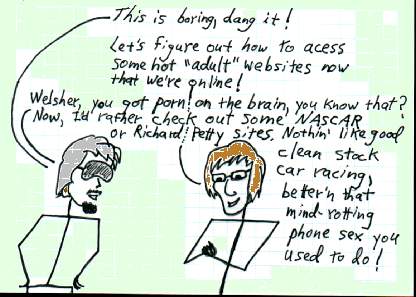 This is boring, dang it!
Let's figure out how to acess
some hot "adult" websites now
that we're online!
Welsher, you got porn on the brain, you know that?
Now, I'd rather check out some NASCAR
or Richard Petty sites. Nothin' like good
clean stock
car racing,
better'n that
mind-rotting
phone sex you
used to do!